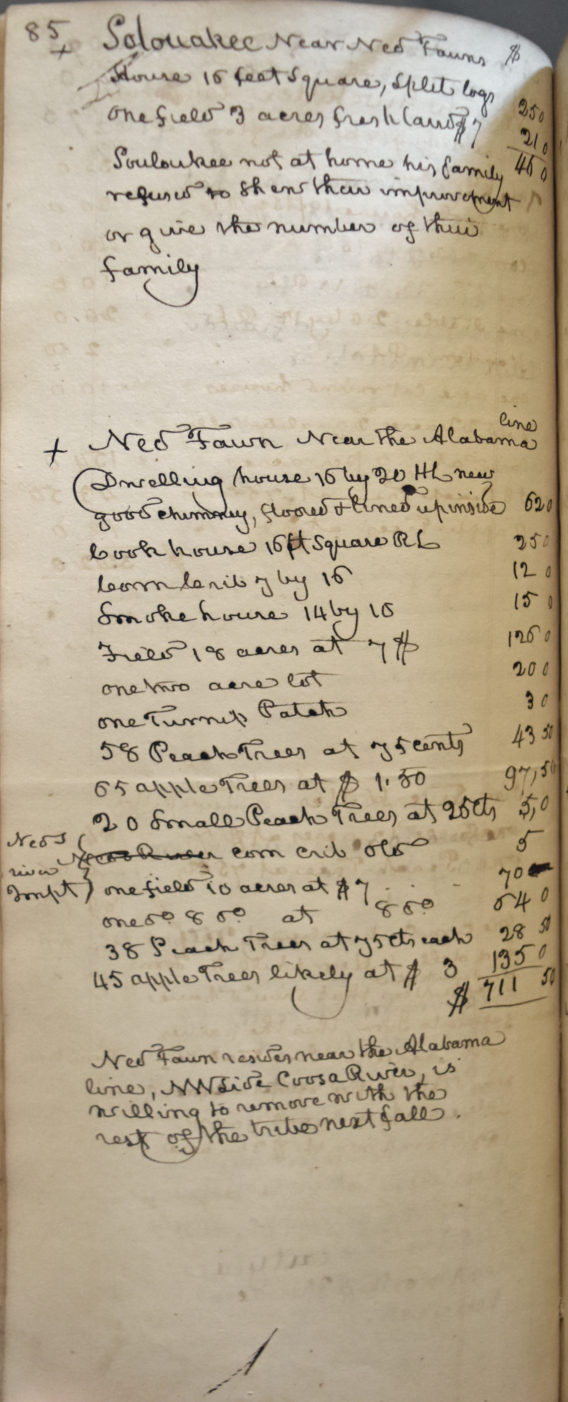 85
+ Solouakee Near Ned Fawns $
House 16 feet Square, Split logs 250
one field 3 acres fresh land $7 210
460
Souloukee not at home his family
refused to Shew their improvement
or give the number of their
family
line
+ Ned Fawn Near the Alabama
Dwelling house 16 by 20 HL new
good chimney, floored & lined up inside 620
Cook house 16 ft Square RL 250
Corn Crib 7 by 16 120
Smoke house 14 by 16 150
Field 18 acres at 7$ 1260
one two acre lot 200
one Turnip Patch 30
58 Peach Trees at 75 cents 43 50
65 apple Trees at $ 1.50 97,50
20 Small Peach Trees at 25 cts 5,0
Neds
river
Impt
corn crib old 5
one field 10 acres at $7 70
one do 8 do at 8 do 640
38 Peach Trees at 75 cts each 28 50
45 apple Trees likely at $ 3 1350
$ 711 50
Ned Fawn resides near the Alabama
line, NW Side Coosa River, is
willing to remove with the
rest of the tribe next fall.